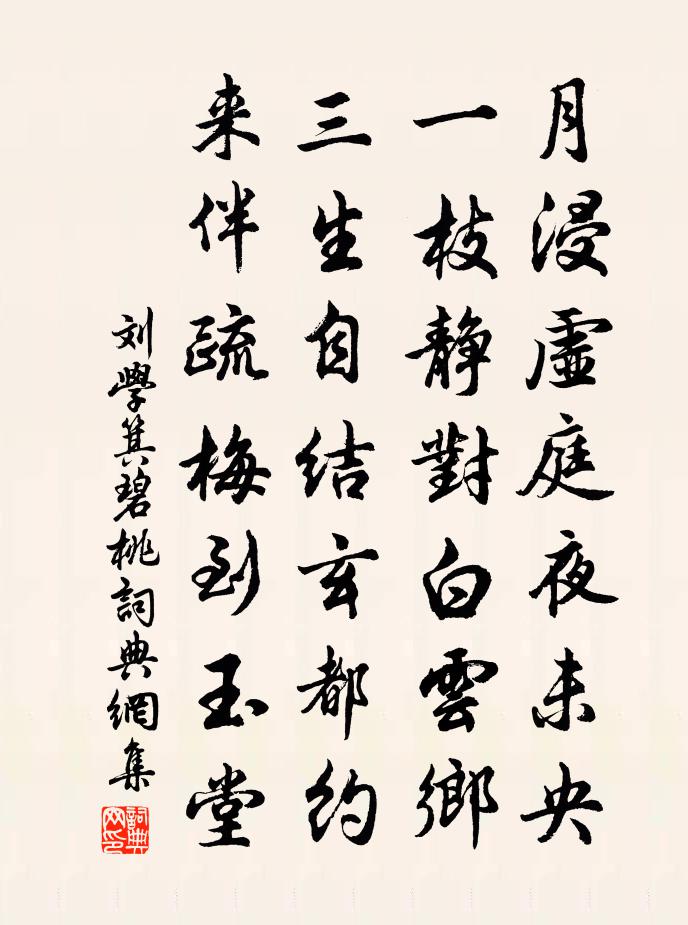 月浸虛庭夜未央
一枝靜對白雲鄉
三生自結玄都約
来伴疏梅到玉堂
刘學箕碧桃詞典網集
詞典网印